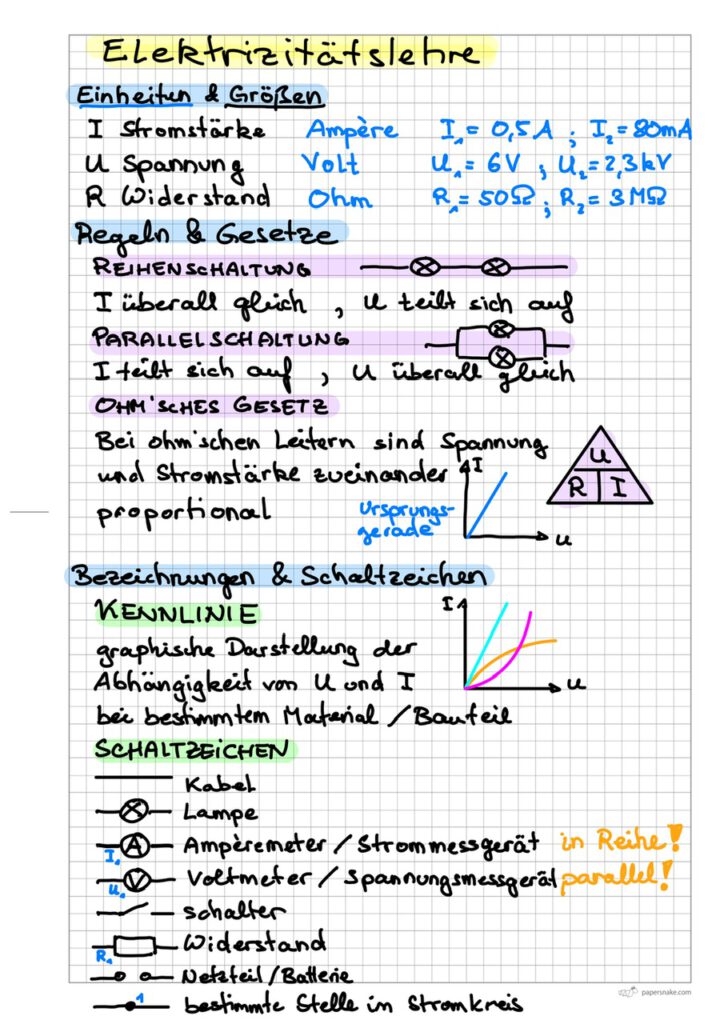 Elektrizitätslehre
Einheiten & Größen
I Stromstärke Ampère I₁ = 0,5 A ; I₂ = 80mA
U Spannung Volt U₁ = 6V ; U₂ = 2,3 kV
R Widerstand Ohm R₁ = 50Ω ; R₂ = 3 MΩ
Regeln & Gesetze
REIHENSCHALTUNG
I überall gleich , U teilt sich auf
PARALLELSCHALTUNG
I teilt sich auf , U überall gleich
OHM'SCHES GESETZ
Bei ohm'schen Leitern sind Spannung
und Stromstärke zueinander
proportional
Ursprungs-
gerade
I
U
U
R I
Bezeichnungen & Schaltzeichen
KENNLINIE
graphische Darstellung der
Abhängigkeit von U und I
bei bestimmtem Material / Bauteil
I
U
SCHALTZEICHEN
Kabel
Lampe
A I₁ Ampèremeter / Strommessgerät in Reihe!
V U₁ Voltmeter / Spannungsmessgerät parallel!
Schalter
R₁ Widerstand
Netzteil / Batterie
1 bestimmte Stelle im Stromkreis
papersnake.com